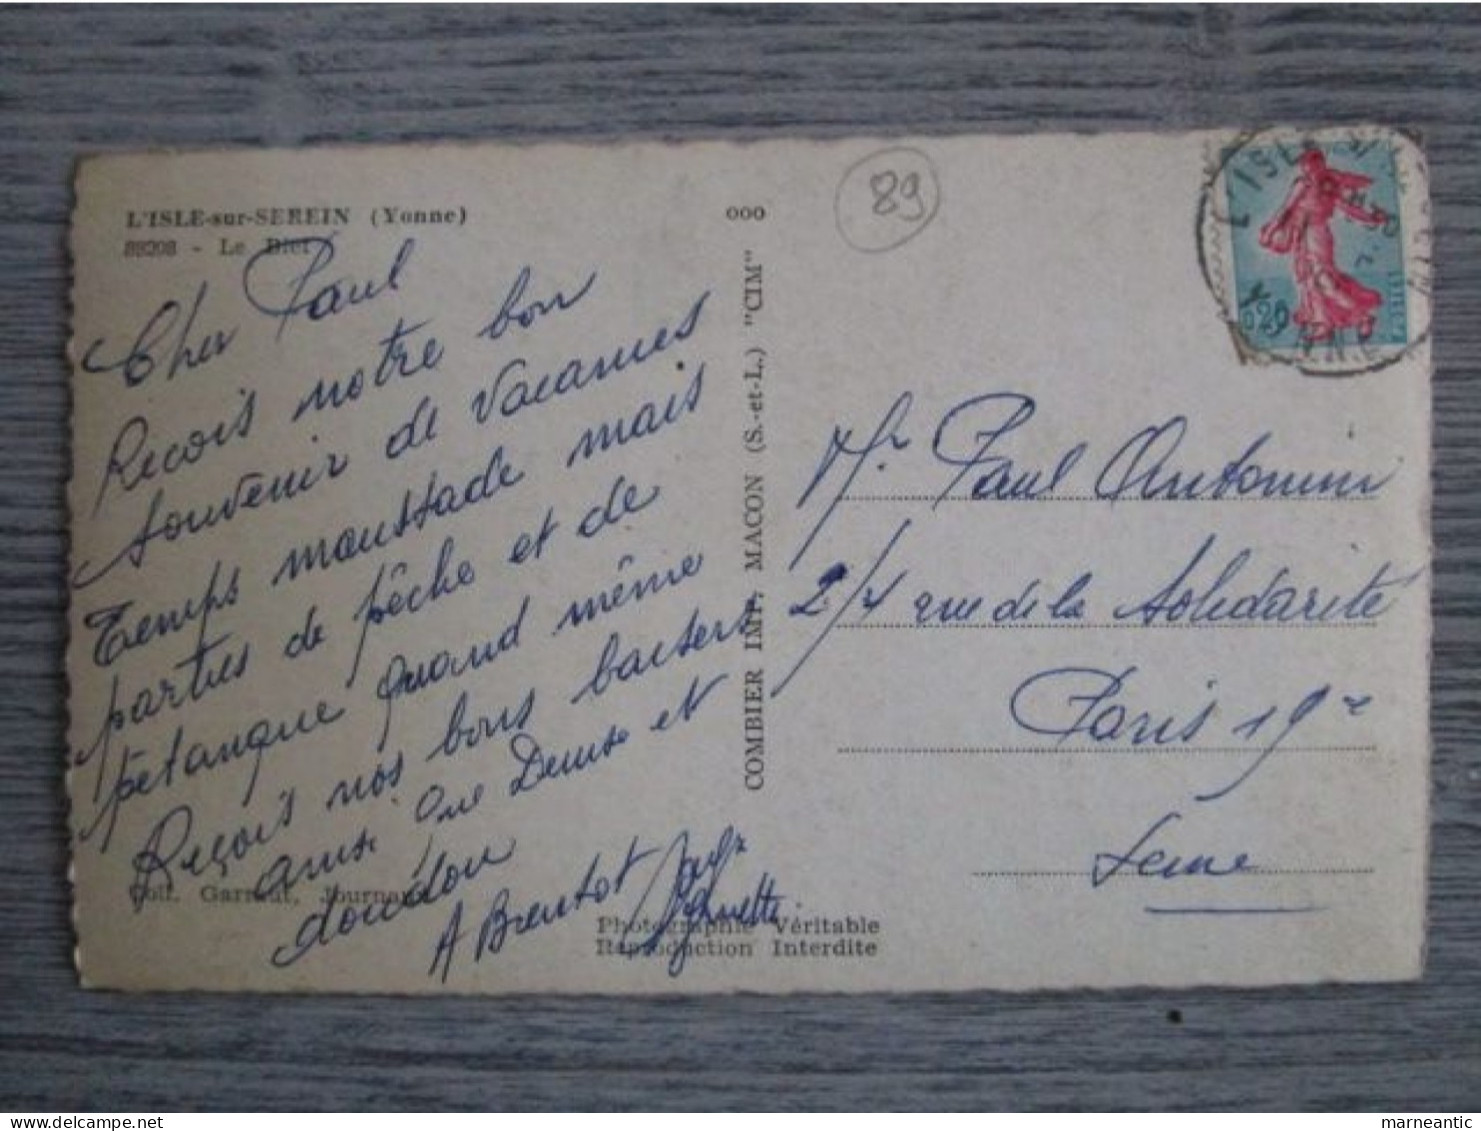 L'ISLE-sur-SEREIN (Yonne)
88208 - Le Bief
Cher Paul
Reçois notre bon
souvenir de vacances
Temps maussade mais
parties de pêche et de
pétanque quand même
Reçois nos bons baisers
ainsi que Denise et
doudou
A Brentot
Coll. Garraut, Journaux
ooo
COMBIER IMP. MACON (S.-et-L.) "CIM"
Photographie Véritable
Reproduction Interdite
89
L'ISLE S/
0,20
Mr Paul Antonini
2/4 rue de la Solidarité
Paris 19e
Seine
marneantic